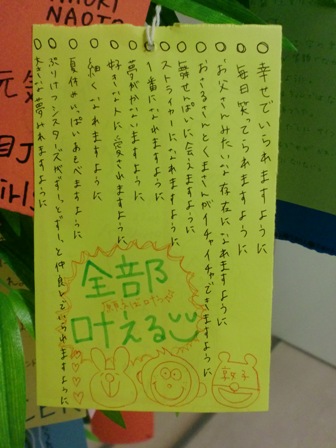 幸せでいられますように
毎日笑ってられますように
お父さんみたいな存在になれますように
おさるさんとくまさんがイチャイチャできますように
幸せいっぱいに会えますように
ストライカーになれますように
1番になれますように
夢がかないますように
好きな人に愛されますように
細くなれますように
夏休みいっぱいあそべますように
ぷりけつシスターズがずーっとずーっと仲良しでいられますように
大きな夢みれますように
全部
叶える
敦子
NAOTO
元気